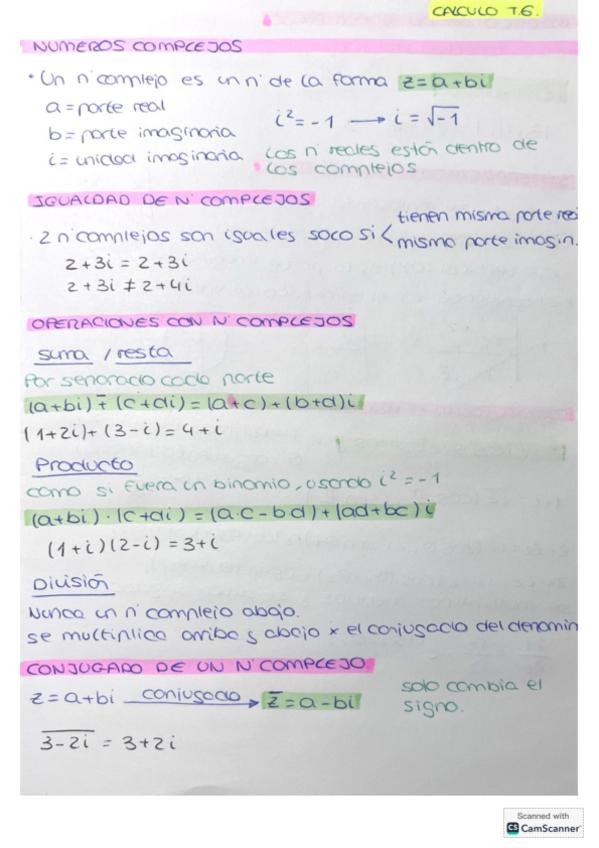 CALCULO T.6.
NUMEROS COMPLEJOS
• Un nº complejo es un nº de la forma z = a + bi
a = parte real
b = parte imaginaria
i² = -1 → i = √-1
i = unidad imaginaria
Los nº reales están dentro de
los complejos
IGUALDAD DE Nº COMPLEJOS
· 2 nº complejos son iguales solo si < tienen misma parte real
misma parte imagin.
2 + 3i = 2 + 3i
2 + 3i ≠ 2 + 4i
OPERACIONES CON Nº COMPLEJOS
suma / resta
Por separado cada parte
(a+bi) ∓ (c+di) = (a+c) + (b+d)i
(1+2i) + (3-i) = 4 + i
Producto
como si fuera un binomio, usando i² = -1
(a+bi) · (c+di) = (a·c - bd) + (ad+bc)i
(1+i)(2-i) = 3+i
División
Nunca un nº complejo abajo.
se multiplica arriba y abajo x el conjugado del denomin
CONJUGADO DE UN Nº COMPLEJO
z = a + bi conjugado → z̅ = a - bi
solo cambia el
signo.
3̅-̅2̅i̅ = 3 + 2i
Scanned with
CS CamScanner